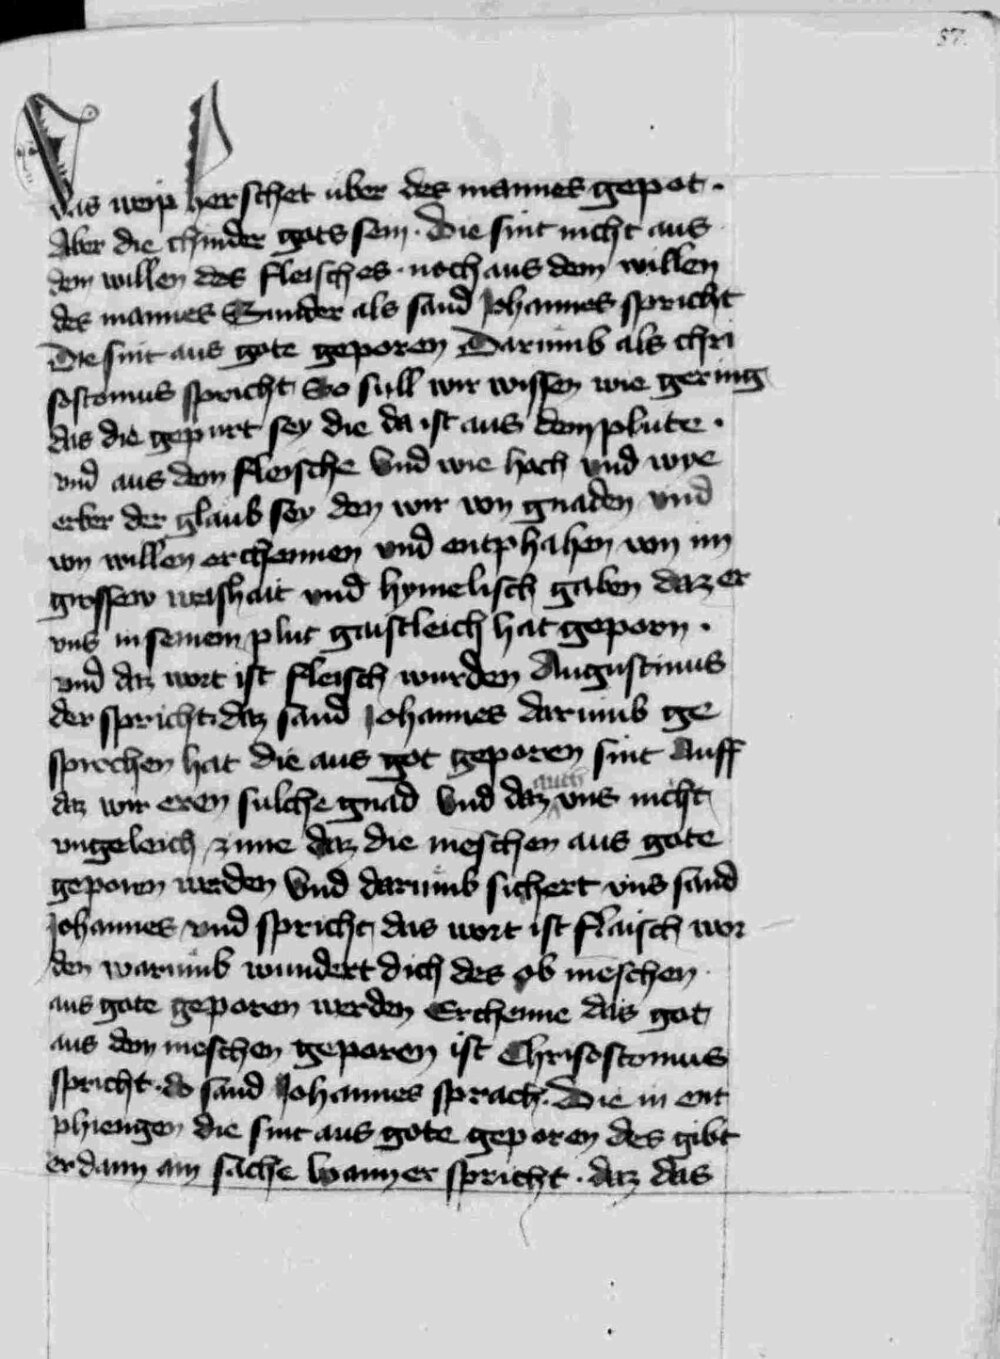 57.
das weip herschet über des mannes gepot.
Aber die chinder gots sein. Die sint nicht aus
dem willen des fleisches. noch aus dem willen
des mannes Sunder als sand Johannes spricht
Die sint aus gote geporen Darumb als chri
sostomus spricht So süll wir wissen wie gering
das die gepurt sey die da ist aus dem plute.
vnd aus dem fleische Vnd wie hoch vnd wye
erber der glaub sey den wir von gnaden vnd
von willen erchennen vnd entphahen von im
grossew weishait vnd hymelisch gaben daz er
vns in seinem plut gaistleich hat geporn.
vnd daz wort ist fleisch wurden Augustinus
der spricht daz sand Johannes darumb ge
sprochen hat die aus got geporen sint Auff
daz wir eren sulche gnad Vnd daz auch vns nicht
vngeleich zime daz die meschen aus gote
geporen werden Vnd darumb sichert vns sand
Johannes vnd spricht das wort ist flaisch wor
den warumb wundert dich des ob meschen
aus gote geporen werden Erchenne das got
aus den meschen geporen ist Chrisostomus
spricht. do sand Johannes sprach. Die in ent
phiengen die sint aus gote geporen des gibt
er dann ain sache wann er spricht. daz das